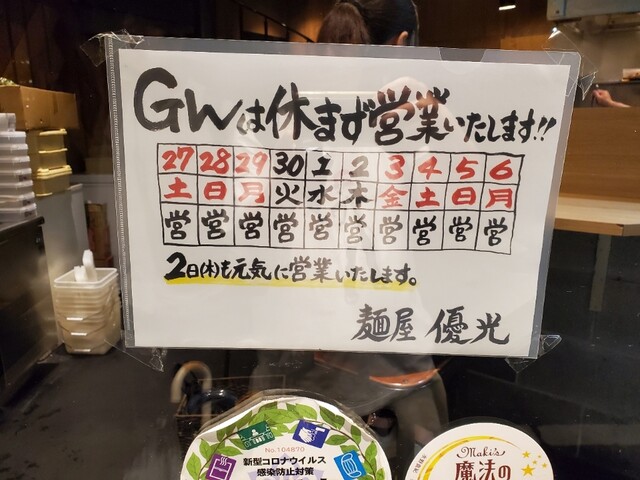 GWは休まず営業いたします!!
27 28 29 30 1 2 3 4 5 6
土 日 月 火 水 木 金 土 日 月
営 営 営 営 営 営 営 営 営 営
2日(木)も元気に営業いたします。
麺屋 優光
No.104870
新型コロナウイルス
感染防止対策
Maki's
魔法の